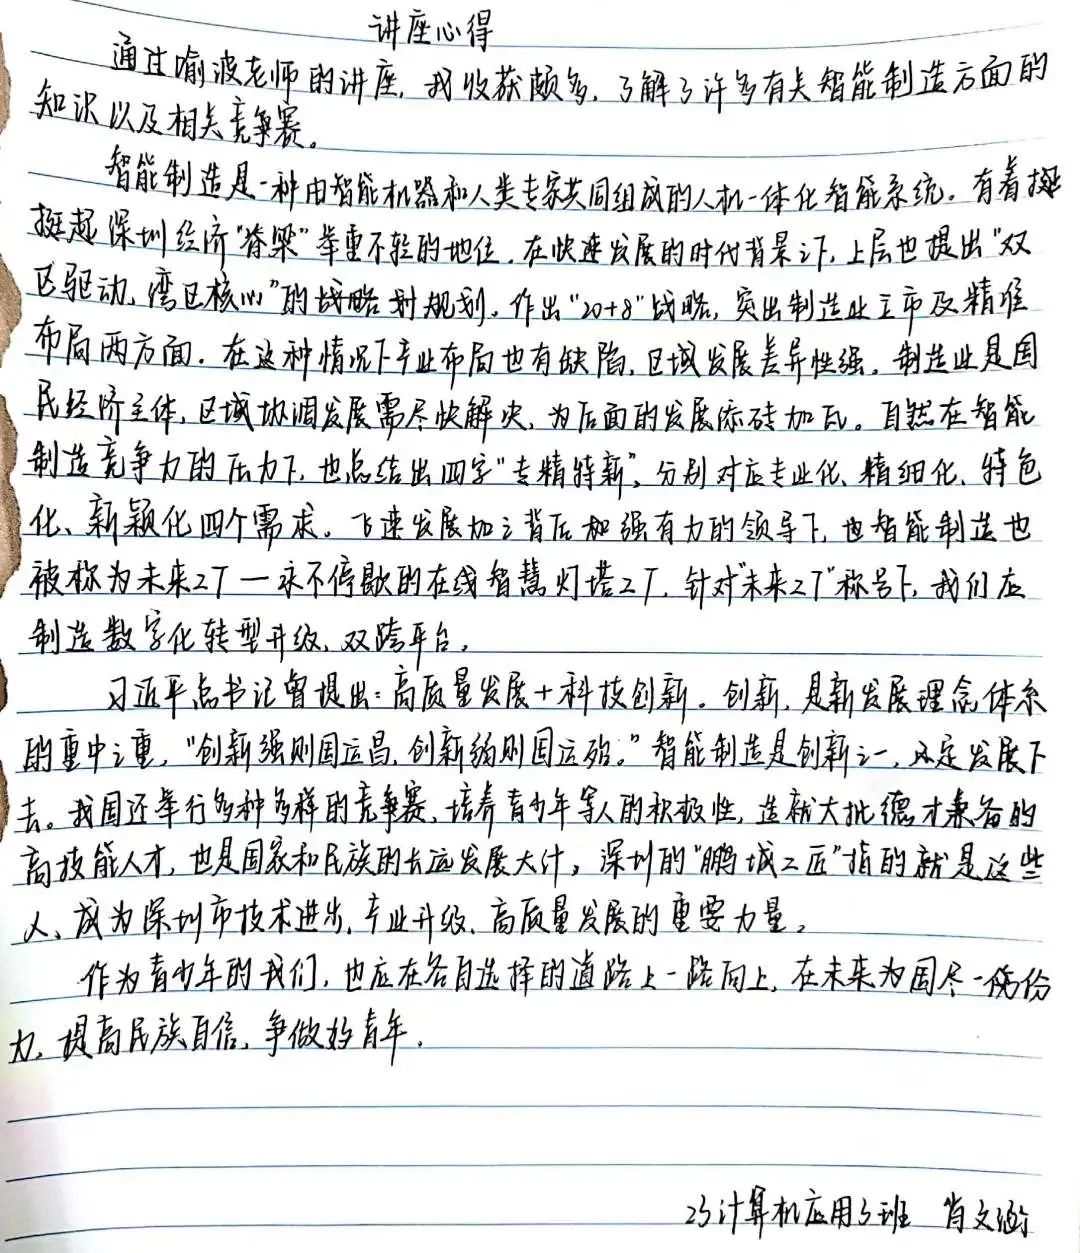 讲座心得
通过喻波老师的讲座,我收获颇多,了解了许多有关智能制造方面的
知识以及相关竞争赛。
智能制造是一种由智能机器和人类专家共同组成的人机一体化智能系统。有着
挺起深圳经济“脊梁”举重不轻的地位,在快速发展的时代背景之下,上层也提出“双
区驱动,湾区核心”的战略规划。作出“20+8”战略,突出制造业立市及精准
布局两方面.在这种情况下产业布局也有缺陷,区域发展差异性强,制造业是国
民经济主体,区域协调发展需尽快解决,为后面的发展添砖加瓦。自然在智能
制造竞争力的压力下,也总结出四字“专精特新”,分别对应专业化、精细化、特色
化、新颖化四个需求。飞速发展加之背后加强有力的领导下,也智能制造也
被称为未来工厂—永不停歇的在线智慧灯塔工厂,针对“未来工厂”称号下,我们应
制造数字化转型升级,双跨平台。
习近平总书记曾提出:高质量发展+科技创新。创新,是新发展理念体系
的重中之重,“创新强则国运昌,创新弱则国运殆。”智能制造是创新之一,必定发展下
去。我国还举行多种多样的竞争赛,培养青少年等人的积极性,造就大批德才兼备的
高技能人才,也是国家和民族的长远发展大计,深圳的“鹏城工匠”指的就是这些
人、成为深圳市技术进步,产业升级、高质量发展的重要力量。
作为青少年的我们,也应在各自选择的道路上一路向上,在未来为国尽一份
力,提高民族自信,争做好青年.
23计算机应用3班 肖文